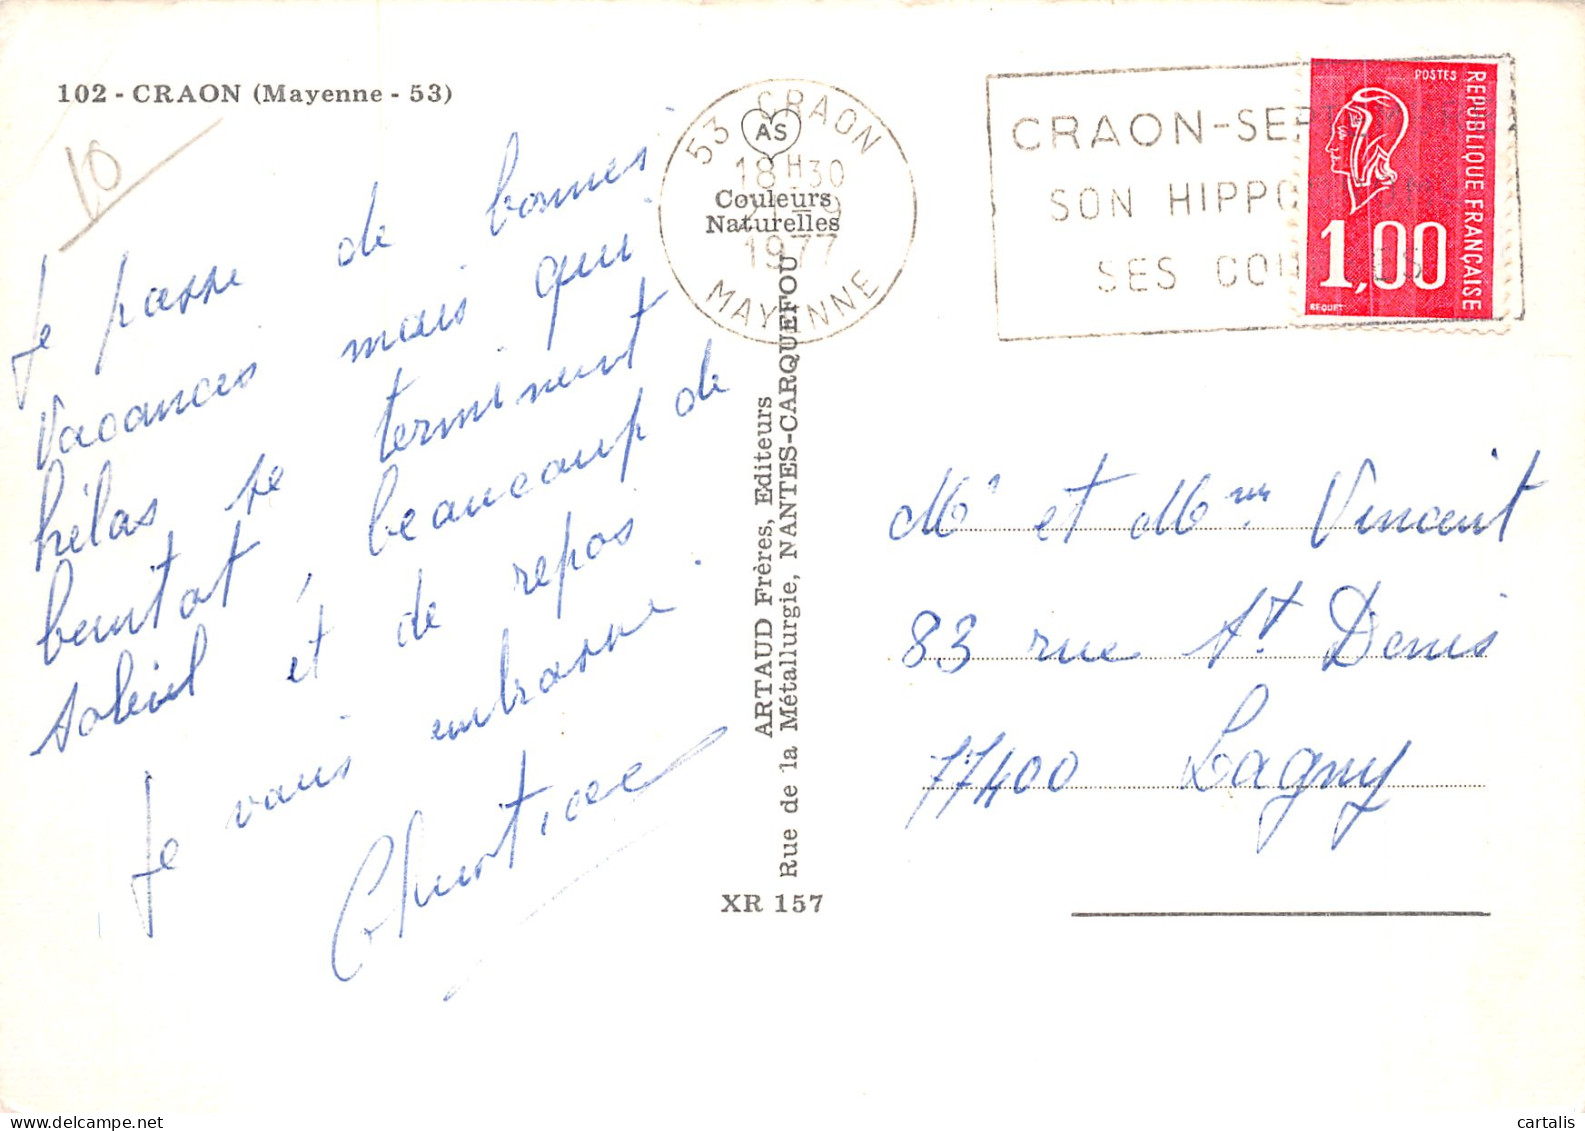 102 - CRAON (Mayenne - 53)
10
Je passe de bonnes
vacances mais qui
hélas se terminent
bientot, beaucoup de
soleil et de repos
Je vous embrasse.
53 CRAON
18H30
1977
MAYENNE
AS
Couleurs
Naturelles
ARTAUD Frères, Editeurs
Rue de la Métallurgie, NANTES-CARQUEFOU
XR 157
CRAON-SEPT
SON HIPPODROME
SES COURSES
POSTES
REPUBLIQUE FRANÇAISE
1,00
BEQUET
Mr et Mme Vincent
83 rue St Denis
77400 Lagny
cartalis